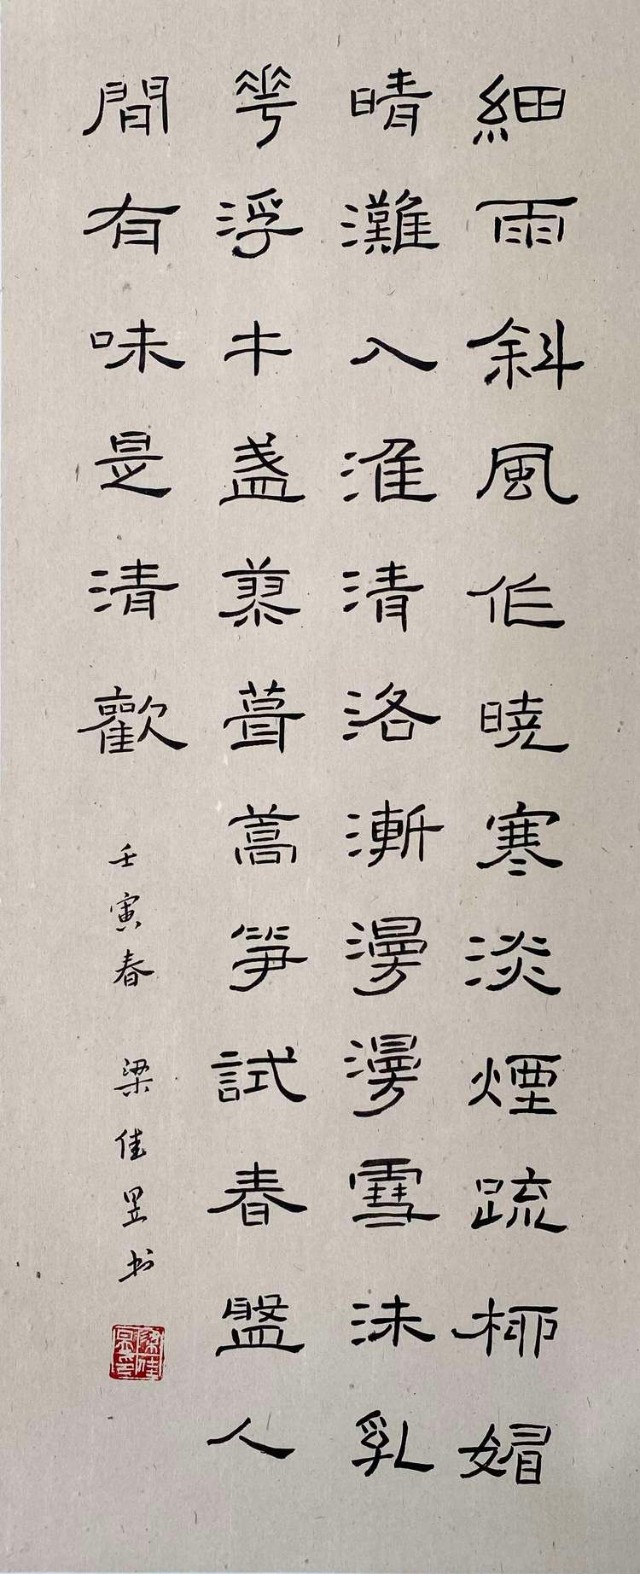 細雨斜風作曉寒淡煙疏柳媚
晴灘入淮清洛漸漫漫雪沫乳
華浮午盞蓼茸蒿筍試春盤人
間有味是清歡
壬寅春 梁佳昱书